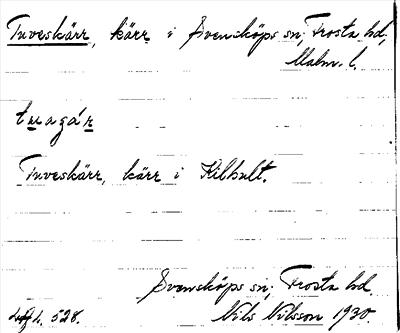 Tuveskärr, kärr i Svensköps sn, Frosta hd,
Malm. l.
tuagár
Tuveskärr, kärr i Kilhult.
Svensköps sn, Frosta hd.
528. Nils Nilsson 1930